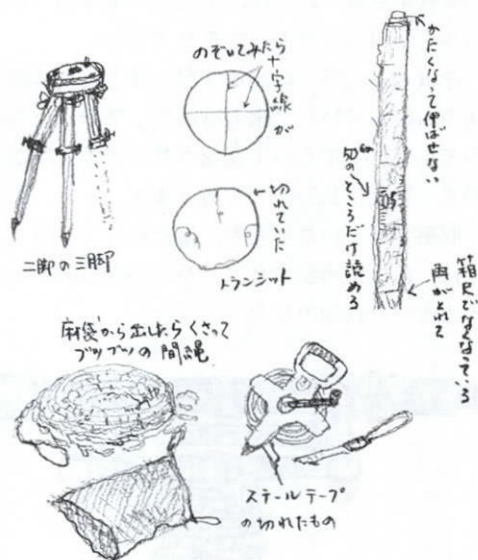 二脚の三脚
のぞいてみたら
十字線が
切れていた
トランジット
かたくなって伸ばせない
ところだけ読める
角がとれて
箱尺でなくなっている
麻袋から出したらくさって
ブツブツの間縄
スチールテープ
の切れたもの